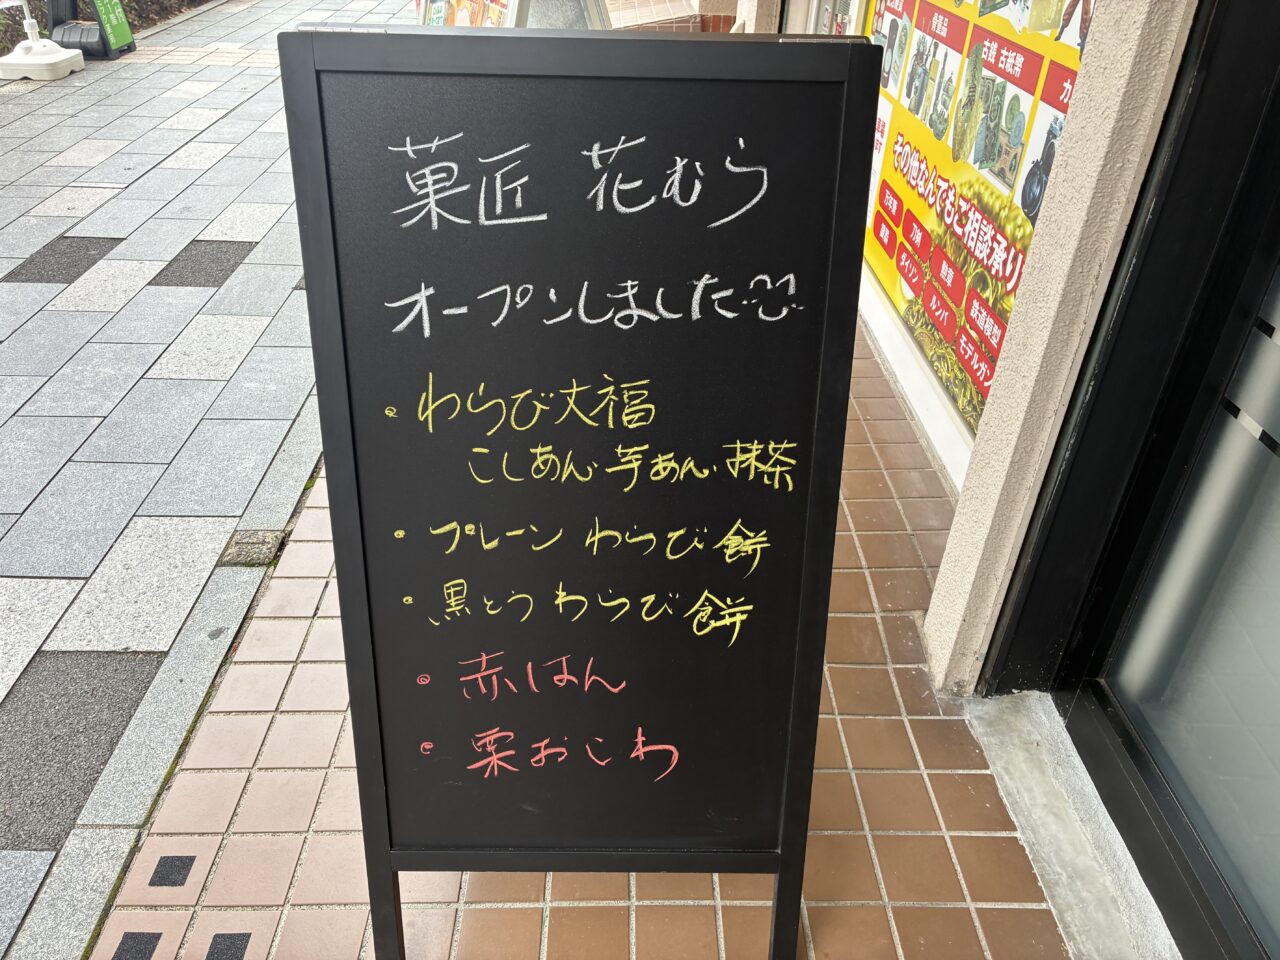 菓匠 花むら
オープンしました
・わらび大福
こしあん・芋あん・抹茶
・プレーン わらび餅
・黒とうわらび餅
・赤はん
・栗おこわ
骨董品
古銭 古紙幣
カ
その他なんでもご相談承り
万年筆
刀剣
勲章
鉄道模型
ダイソン
ルンバ
モデルガン